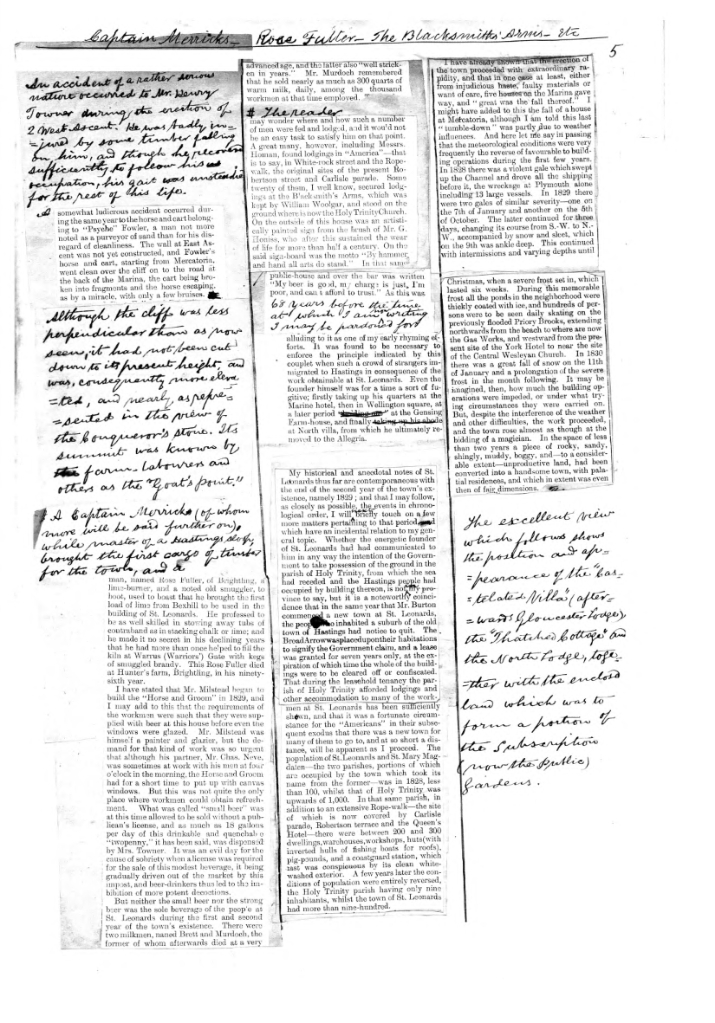 Captain Merricks – Rose Fuller – The Blacksmiths' Arms – Etc
5
An accident of a rather serious
nature occurred to Mr. Henry
Towner during the erection of
2 West Ascent. He was badly in=
=jured by some timber falling
on him, and though he recovered
sufficiently to follow his
occupation, his gait was unsteady
for the rest of his life.
A somewhat ludicrous accident occurred dur-
ing the same year to the horse and cart belong-
ing to "Psyche" Fowler, a man not more
noted as a purveyor of sand than for his dis-
regard of cleanliness. The wall at East As-
cent was not yet constructed, and Fowler's
horse and cart, starting from Mercatoria,
went clean over the cliff on to the road at
the back of the Marina, the cart being bro-
ken into fragments and the horse escaping,
as by a miracle, with only a few bruises.
Although the cliff was less
perpendicular than as now
seen, it had not been cut
down to its present height, and
was, consequently, more eleva
=ted, and nearly as repre=
=sented in the view of
the Conqueror's stone. Its
summit was known by
farm labourers and
others as the "Goat's point."
# A Captain Merricks (of whom
more will be said further on),
while master of a Hastings sloop,
brought the first cargo of timber
for the town, and a
man, named Rose Fuller, of Brightling, a
lime-burner, and a noted old smuggler, to
boot, used to boast that he brought the first
load of lime from Bexhill to be used in the
building of St. Leonards. He professed to
be as well skilled in stowing away tubs of
contraband as in stacking chalk or lime; and
he made it no secret in his declining years
that he had more than once helped to fill the
kiln at Warrus (Warriors') Gate with kegs
of smuggled brandy. This Rose Fuller died
at Hunter's farm, Brightling, in his ninety-
sixth year.
I have stated that Mr. Milstead began to
build the "Horse and Groom" in 1829, and
I may add to this that the requirements of
the workmen were such that they were sup-
plied with beer at this house before even the
windows were glazed. Mr. Milstead was
himself a painter and glazier, but the de-
mand for that kind of work was so urgent
that although his partner, Mr. Chas. Neve,
was sometimes at work with his men at four
o'clock in the morning, the Horse and Groom
had for a short time to put up with canvas
windows. But this was not quite the only
place where workmen could obtain refresh-
ment. What was called "small beer" was
at this time allowed to be sold without a pub-
lican's license, and as much as 18 gallons
per day of this drinkable and quenchable
"twopenny," it has been said, was dispensed
by Mrs. Towner. It was an evil day for the
cause of sobriety when a license was required
for the sale of this modest beverage, it being
gradually driven out of the market by this
impost, and beer-drinkers thus led to the im-
bibition of more potent decoctions.
But neither the small beer nor the strong
beer was the sole beverage of the people at
St. Leonards during the first and second
year of the town's existence. There were
two milkmen, named Brett and Murdoch, the
former of whom afterwards died at a very
advanced age, and the latter also "well strick-
en in years." Mr. Murdoch remembered
that he sold nearly as much as 300 quarts of
warm milk, daily, among the thousand
workmen at that time employed.
# The reader
may wonder where and how such a number
of men were fed and lodged, and it would not
be an easy task to satisfy him on that point.
A great many, however, including Messrs.
Homan, found lodgings in "America"—that
is to say, in White-rock street and the Rope-
walk, the original sites of the present Ro-
bertson street and Carlisle parade. Some
twenty of them, I well know, secured lodg-
ings at the Blacksmith's Arms, which was
kept by William Woolgar, and stood on the
ground where is now the Holy Trinity Church.
On the outside of this house was an artisti-
cally painted sign from the brush of Mr. G.
Honiss, who after this sustained the wear
of life for more than half a century. On the
said sign-board was the motto "By hammer,
and hand all arts do stand." In that same
public-house and over the bar was written
"My beer is good, my charge is just, I'm
poor, and can't afford to trust." As this was
68 years before the time
at which I am writing
I may be pardoned for
alluding to it as one of my early rhyming ef-
forts. It was found to be necessary to
enforce the principle indicated by this
couplet when such a crowd of strangers im-
migrated to Hastings in consequence of the
work obtainable at St. Leonards. Even the
founder himself was for a time a sort of fu-
gitive; firstly taking up his quarters at the
Marine hotel, then in Wellington square, at
a later period at the Gensing
Farm-house, and finally taking up his abode
at North villa, from which he ultimately re-
moved to the Allegria.
My historical and anecdotal notes of St.
Leonards thus far are contemporaneous with
the end of the second year of the town's ex-
istence, namely 1829; and that I may follow,
as closely as possible, the events in chrono-
logical order, I will briefly touch on a few
more matters pertaining to that period
which have no incidental relation to my gen-
eral topic. Whether the energetic founder
of St. Leonards had had communicated to
him in any way the intention of the Govern-
ment to take possession of the ground in the
parish of Holy Trinity, from which the sea
had receded and the Hastings people had
occupied by building thereon, is not my pro-
vince to say, but it is a noteworthy coinci-
dence that in the same year that Mr. Burton
commenced a new town at St. Leonards,
the people inhabited a suburb of the old
town of Hastings had notice to quit. The
Broad Arrow was placed upon their habitations
to signify the Government claim, and a lease
was granted for seven years only, at the ex-
piration of which time the whole of the build-
ings were to be cleared off or confiscated.
That during the leasehold tenancy the par-
ish of Holy Trinity afforded lodgings and
other accommodation to many of the work-
men at St. Leonards has been sufficiently
shown, and that it was a fortunate circum-
stance for the "Americans" in their subse-
quent exodus that there was a new town for
many of them to go to, and at so short a dis-
tance, will be apparent as I proceed. The
population of St. Leonards and St. Mary Mag-
dalen—the two parishes, portions of which
are occupied by the town which took its
name from the former—was in 1828, less
than 100, whilst that of Holy Trinity was
upwards of 1,000. In that same parish, in
addition to an extensive Rope-walk—the site
of which is now covered by Carlisle
parade, Robertson terrace and the Queen's
Hotel—there were between 200 and 300
dwellings, warehouses, workshops, huts (with
inverted hulls of fishing boats for roofs),
pig-pounds, and a coastguard station, which
last was conspicuous by its clean white-
washed exterior. A few years later the con-
ditions of population were entirely reversed,
the Holy Trinity parish having only nine
inhabitants, whilst the town of St. Leonards
had more than nine-hundred.
I have already shown that the erection of
the town proceeded with extraordinary ra-
pidity, and that in one case at least, either
from injudicious haste, faulty materials or
want of care, five houses on the Marina gave
way, and "great was the fall thereof." I
might have added to this the fall of a house
at Mercatoria, although I am told this last
"tumble-down" was partly due to weather
influences. And here let me say in passing
that the meteorological conditions were very
frequently the reverse of favourable to build-
ing operations during the first few years.
In 1828 there was a violent gale which swept
up the Channel and drove all the shipping
before it, the wreckage at Plymouth alone
including 13 large vessels. In 1829 there
were two gales of similar severity—one on
the 7th of January and another on the 5th
of October. The latter continued for three
days, changing its course from S.-W. to N.-
W., accompanied by snow and sleet, which
on the 9th was ankle deep. This continued
with intermissions and varying depths until
Christmas, when a severe frost set in, which
lasted six weeks. During this memorable
frost all the ponds in the neighborhood were
thickly coated with ice, and hundreds of per-
sons were to be seen daily skating on the
previously flooded Priory Brooks, extending
northwards from the beach to where are now
the Gas Works, and westward from the pre-
sent site of the York Hotel to near the site
of the Central Wesleyan Church. In 1830
there was a great fall of snow on the 11th
of January and a prolongation of the severe
frost in the following month. It may be
imagined, then, how much the building op-
erations were impeded, or under what try-
ing circumstances they were carried on.
But, despite the interference of the weather
and other difficulties, the work proceeded,
and the town rose almost as though at the
bidding of a magician. In the space of less
than two years a piece of rocky, sandy,
shingly, muddy, boggy, and—to a consider-
able extent—unproductive land, had been
converted into a handsome town, with pala-
tial residences, and which in extent was even
then of fair dimensions.
The excellent view
which follows shows
the position and ap=
=pearance of the "Cas=
=tellated Villa" (after=
=wards Gloucester Lodge),
the "Thatched Cottage" and
the North Lodge, toge=
=ther with the enclosed
land which was to
form a portion of
the Subscription
(now the Public)
Gardens.